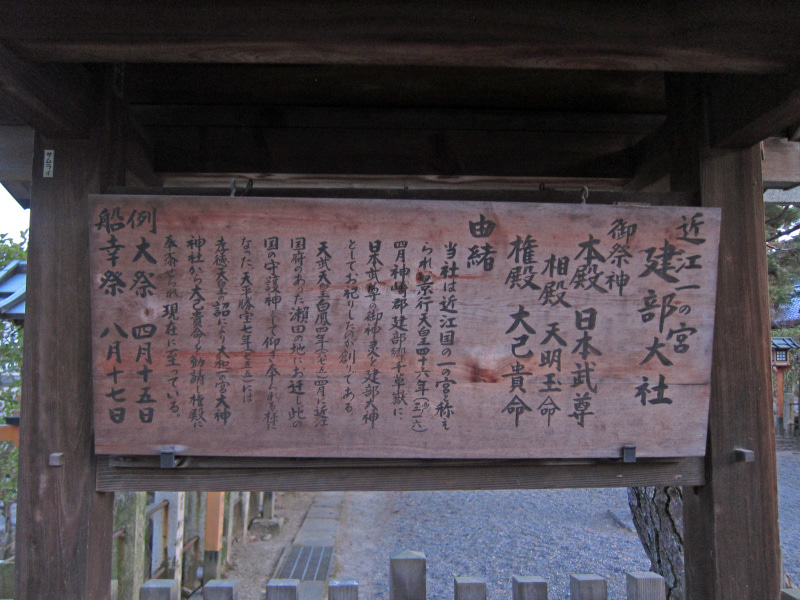 近江一の宮
建部大社
御祭神
本殿 日本武尊
相殿 天明玉命
権殿 大己貴命
由緒
当社は近江国の一の宮と称え
られ景行天皇四十六年
四月神崎郡建部郷千草嶽に、
日本武尊の御神霊を建部大神
としてお祀したのが創りである
天武天皇白鳳四年四月に近江
国府のあった瀬田の地にお迁し此の
国の守護神として仰ぎ奉られる社に
なった 天平勝宝七年には
孝徳天皇の詔により大和一の宮大神
神社から大己貴命を勧請し権殿に
奉斎せられ現在に至っている。
例大祭 四月十五日
船幸祭 八月十七日
サムライ